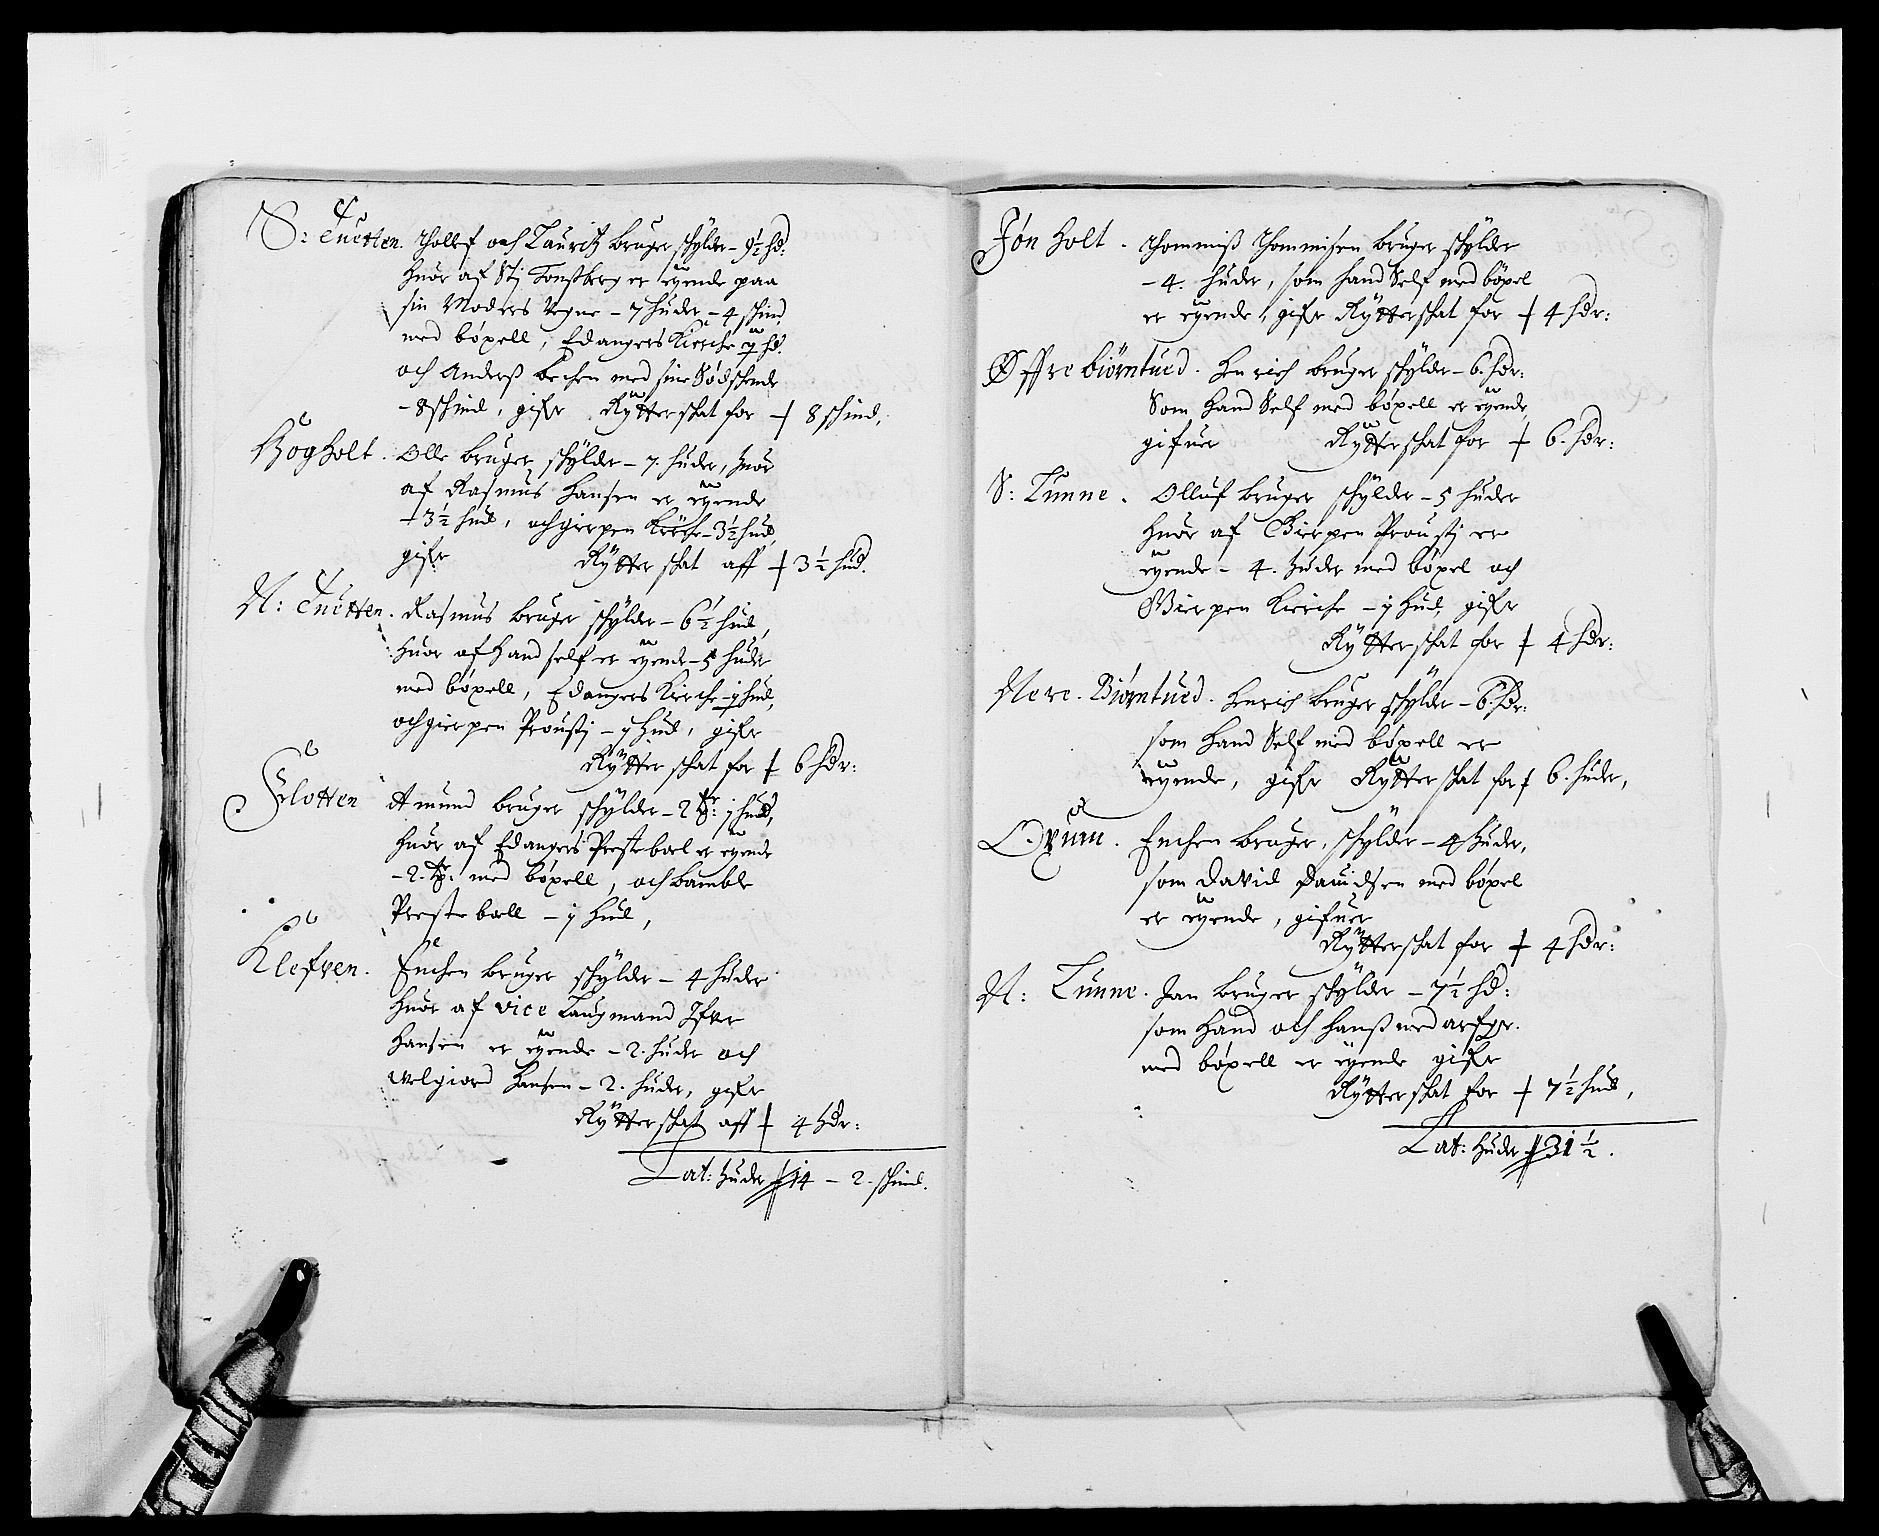 S: Tuetten. Thollef och Lauritz bruger schylder - 9½ hd:
huor af Stj Tonsberg er eyende paa
sin Moders Vegne - 7 huder - 4 schind
medböxell, Edangers Kierche 1 hd.
och Anderss Bechen med sine Södschende
- 8 schind, gifr Rytterschat for - 8 schind,
Högholt. Olle bruger schylder - 7. huder, huor
af Rasmus Hansen er eyende
3½ hud, och gierpen Kirche - 3½ hud,
gifr Rytterschat aff 3½ hud.
N: Tuetten. Rasmus bruger schylder - 6½ hud,
huor af hand self er eyende - 5 huder
med böxell, Edangers Kirche - 1 hud,
och gierpen Proustj - 1 hud, gifr
Rytterschat for 6 hdr:
Flotten Amund bruger schylder - 2 tr: 1 hud,
huor af Edangers Prestebol er eyende
- 2. tr. med böxell, och bamble
Presteboll - 1 hud,
Klefven. Enchen bruger schylder - 4 huder
huor af vice Laugmand Ifver
Hansen er eyende - 2. huder och
Welgiord Hansen - 2. huder, gifr
Rytterschat aff 4 hdr:
Lat: huder 14 - 2. schind.
Jönholt. Thommiss Thommisen bruger schylder
- 4. huder, som hand Self med böxel
er eyende, gifr Rytterschat for 4 hdr:
Øffre biörntued. Henrich bruger schylder - 6. hdr:
Som hand Self med böxell er eyende,
gifuer Rytterschat for 6. hdr:
S: Tunne. Olluf bruger schylder - 5 huder
huor af Gierpen Proustj er
eyende - 4. huder med böxel och
Gierpen Kierche - 1 hud, gifr
Rytterschat for 4 hdr:
Nere. Biörntued. Henrich bruger schylder - 6. hdr:
som hand Self med böxell er
eyende, gifr Rytterschat for 6. huder,
Öxum. Enchen bruger, schylder - 4 huder,
som David Dauidsen med böxel
er eyende, gifuer
Rytterschat for 4 hdr:
N: Tunne. Jan bruger schylder - 7½ hd:
som hand och hanss med arfgr.
med böxell er eyende gifr
Rytterschat for 7½ hud,
Lat: huder 31½.